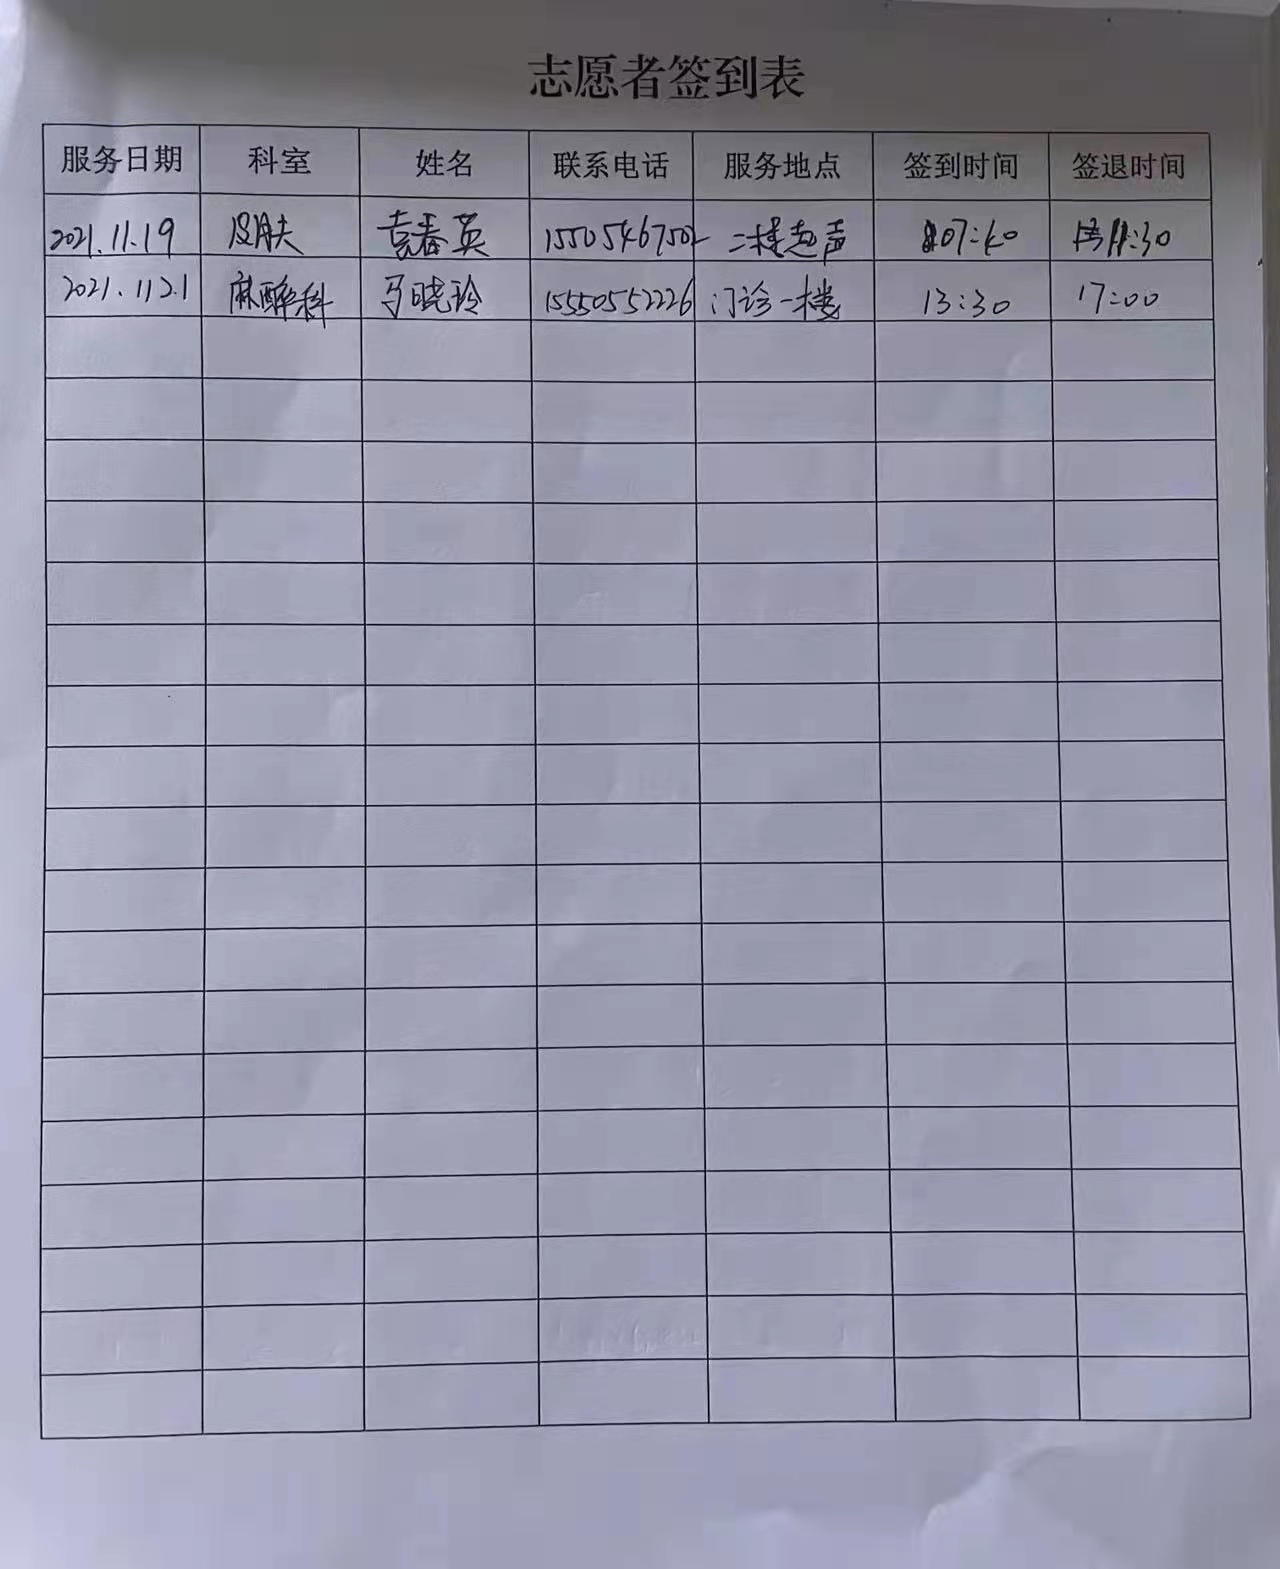 志愿者签到表
服务日期 科室 姓名 联系电话 服务地点 签到时间 签退时间
2021.11.19 皮肤 袁春英 15505467502 二楼超声 07:40 11:30
2021.1121 麻醉科 马晓玲 15550552226 门诊一楼 13:30 17:00